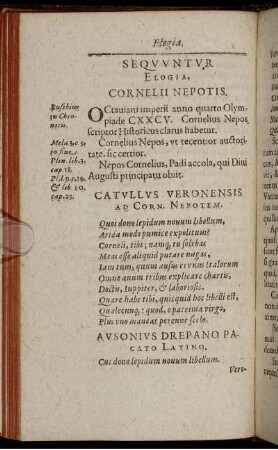 Elogia.
SEQVVNTVR
ELOGIA,
CORNELII NEPOTIS.
Eusebius
in Chro-
nicis.
OCtauiani imperii anno quarto Olym-
piade CXXCV. Cornelius Nepos
scriptor Historicus clarus habetur.
Mela 3. c. 5.
in fine.
Plin. lib. 3.
cap. 18.
Cornelius Nepos, vt recentior auctori-
tate, sic certior.
Nepos Cornelius, Padi accola, qui Diui
Augusti principatu obiit.
& lib. 10.
cap. 23.
CATVLLVS VERONENSIS
AD CORN. NEPOTEM.
Quoi dono lepidum nouum libellum,
Arida modo pumice expolitum?
Corneli, tibi; namq; tu solebas
Meas esse aliquid putare nugas,
Iam tum, quum ausus es vnus Italorum
Omne æuum tribus explicare chartis,
Doctis, Iuppiter, & laboriosis.
Quare habe tibi, quicquid hoc libelli est,
Qualecunq;: quod, o patrima virgo,
Plus vno maneat perenne seclo.
AVSONIVS DREPANO PA-
CATO LATINO.
Cui dono lepidum nouum libellum.
Vero-